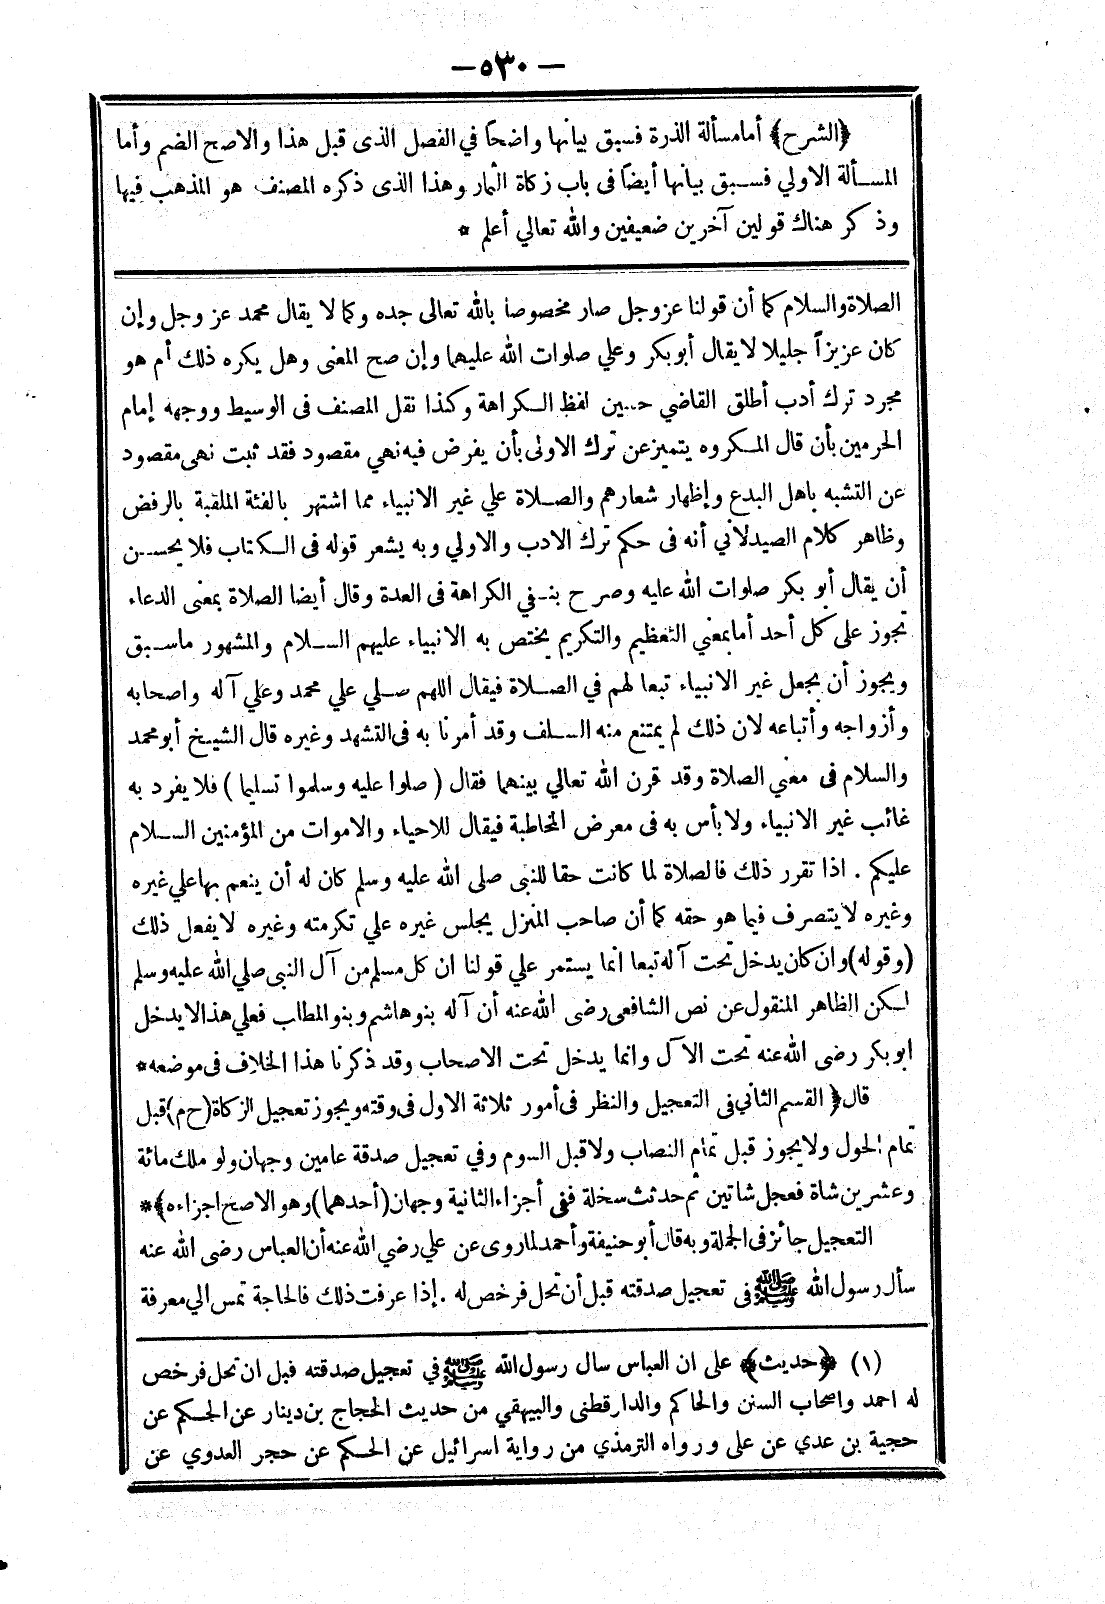 — ٥٣٠ —
﴿الشرح﴾ أمامسألة الذرة فسبق بيانها واضحاً في الفصل الذى قبل هذا والاصح الضم وأما
المسألة الاولي فسبق بيانها أيضاً فى باب زكاة الثمار وهذا الذى ذكره المصنف هو المذهب فيها
وذكر هناك قولين آخرين ضعيفين والله تعالي أعلم *
الصلاة والسلام كما أن قولنا عزوجل صار مخصوصا بالله تعالى جده وكما لا يقال محمد عز وجل وإن
كان عزيزاً جليلا لا يقال أبوبكر وعلي صلوات الله عليهما وإن صح المعنى وهل يكره ذلك أم هو
مجرد ترك أدب أطلق القاضي حسين لفظ الكراهة وكذا نقل المصنف فى الوسيط ووجهه إمام
الحرمين بأن قال المكروه يتميز عن ترك الاولى بأن يفرض فيه نهي مقصود فقد ثبت نهى مقصود
عن التشبه باهل البدع وإظهار شعارهم والصلاة علي غير الانبياء مما اشتهر بالفئة الملقبة بالرفض
وظاهر كلام الصيدلاني أنه فى حكم ترك الادب والاولي وبه يشعر قوله فى الكتاب فلا يحسن
أن يقال أبو بكر صلوات الله عليه وصرح بنفي الكراهة فى العدة وقال أيضا الصلاة بمعنى الدعاء
تجوز على كل أحد أمابمعني التعظيم والتكريم يختص به الانبياء عليهم السلام والمشهور ماسبق
ويجوز أن يجعل غير الانبياء تبعا لهم في الصلاة فيقال اللهم صلي علي محمد وعلي آله واصحابه
وأزواجه وأتباعه لان ذلك لم يمتنع منه السلف وقد أمرنا به فى التشهد وغيره قال الشيخ أبو محمد
والسلام فى معني الصلاة وقد قرن الله تعالي بينهما فقال ( صلوا عليه وسلموا تسليما ) فلا يفرد به
غائب غير الانبياء ولا بأس به فى معرض المخاطبة فيقال للاحياء والاموات من المؤمنين السلام
عليكم . اذا تقرر ذلك فالصلاة لما كانت حقا للنبى صلى الله عليه وسلم كان له أن ينعم بها علي غيره
وغيره لا يتصرف فيما هو حقه كما أن صاحب المنزل يجلس غيره علي تكرمته وغيره لا يفعل ذلك
(وقوله) وان كان يدخل تحت آله تبعا انما يستمر علي قولنا ان كل مسلم من آل النبى صلي الله عليه وسلم
لكن الظاهر المنقول عن نص الشافعى رضى الله عنه أن آله بنو هاشم وبنو المطلب فعلي هذا لا يدخل
ابو بكر رضى الله عنه تحت الآل وانما يدخل تحت الاصحاب وقد ذكرنا هذا الخلاف فى موضعه *
قال﴿ القسم الثاني فى التعجيل والنظر فى أمور ثلاثة الاول فى وقته ويجوز تعجيل الزكاة (ح م) قبل
تمام الحول ولا يجوز قبل تمام النصاب ولا قبل السوم وفي تعجيل صدقة عامين وجهان ولو ملك مائة
وعشرين شاة فعجل شاتين ثم حدثت سخلة ففى أجزاء الثانية وجهان (أحدهما) وهو الاصح اجزاءه﴾*
التعجيل جائز فى الجملة وبه قال أبو حنيفة وأحمد لما روى عن علي رضي الله عنه أن العباس رضى الله عنه
سأل رسول الله ﷺ فى تعجيل صدقته قبل أن تحل فرخص له . إذا عرفت ذلك فالحاجة تمس الي معرفة
(١) ﴿حديث﴾ على ان العباس سال رسول الله ﷺ في تعجيل صدقته قبل ان تحل فرخص
له احمد واصحاب السنن والحاكم والدارقطنى والبيهقي من حديث الحجاج بن دينار عن الحكم عن
حجية بن عدي عن على ورواه الترمذي من رواية اسرائيل عن الحكم عن حجر العدوي عن